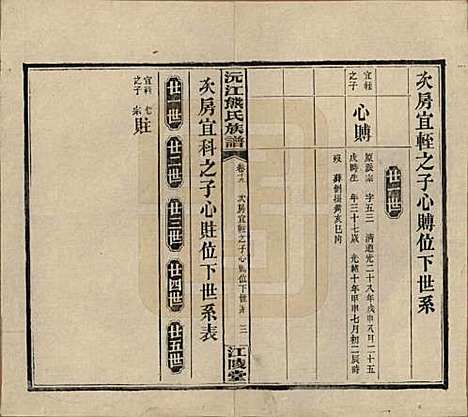 次房宜輊之子心賻位下世系
廿一世
宜輊
之子
心賻
原派宗 字五三 清道光二十八年戊申八月二十五
戌時生 年三十七歲 光緒十年甲申七月初二辰時
歿 葬劍
亥巳向
沅江熊氏族譜
卷十九
次房宜輊之子心賻位下世系
三
江陵堂
次房宜科之子心賍位下世系表
廿一世
廿二世
廿三世
廿四世
廿五世
宜科
之子
賍